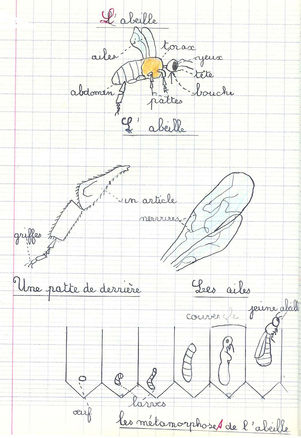 L'abeille
ailes
torax
yeux
tête
abdomen
pattes
bouche
L'abeille
un article
nervures
griffes
Une patte de derrière
Les ailes
couvercle
jeune abeille
œuf
larves
les métamorphoses de l'abeille